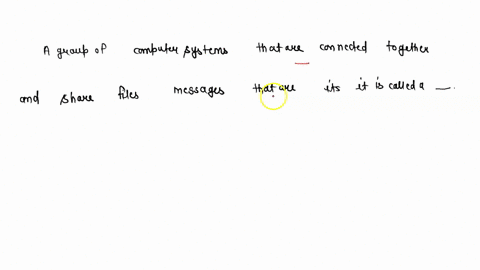 A group of computer systems that are connected together
and share files messages that are its it is called a __.